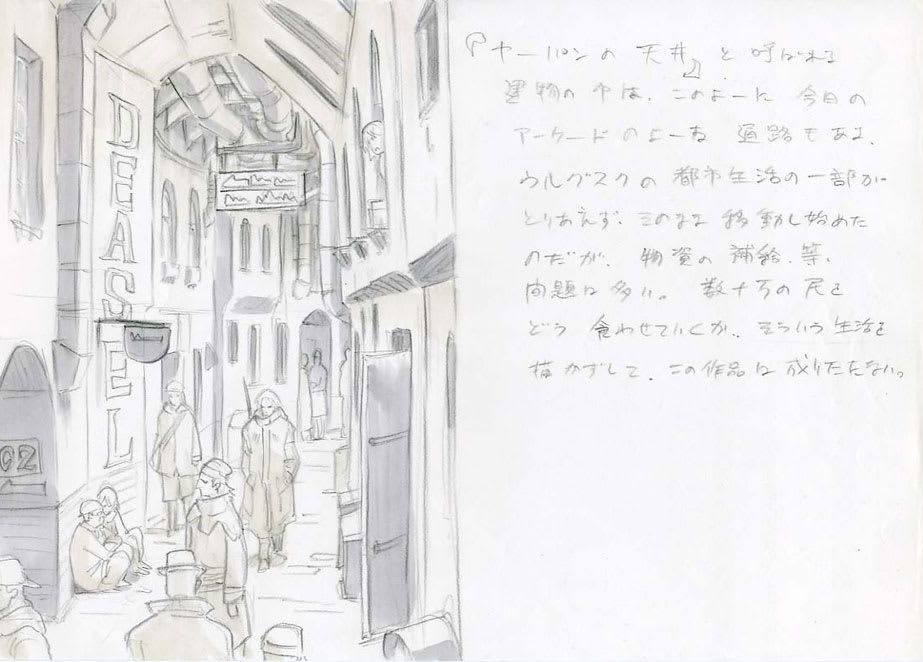 DEASTEL
02
『ヤーパンの天井』と呼ばれる
建物の中は、このように今日の
アーケードのような道路もある。
ウルグスクの都市生活の一部が
とりあえず、そのまま移動し始めた
のだが、物資の補給、等、
問題は多い。数十万の民を
どう食わせていくか、そういう生活を
描かずして、この作品は成りたたない。